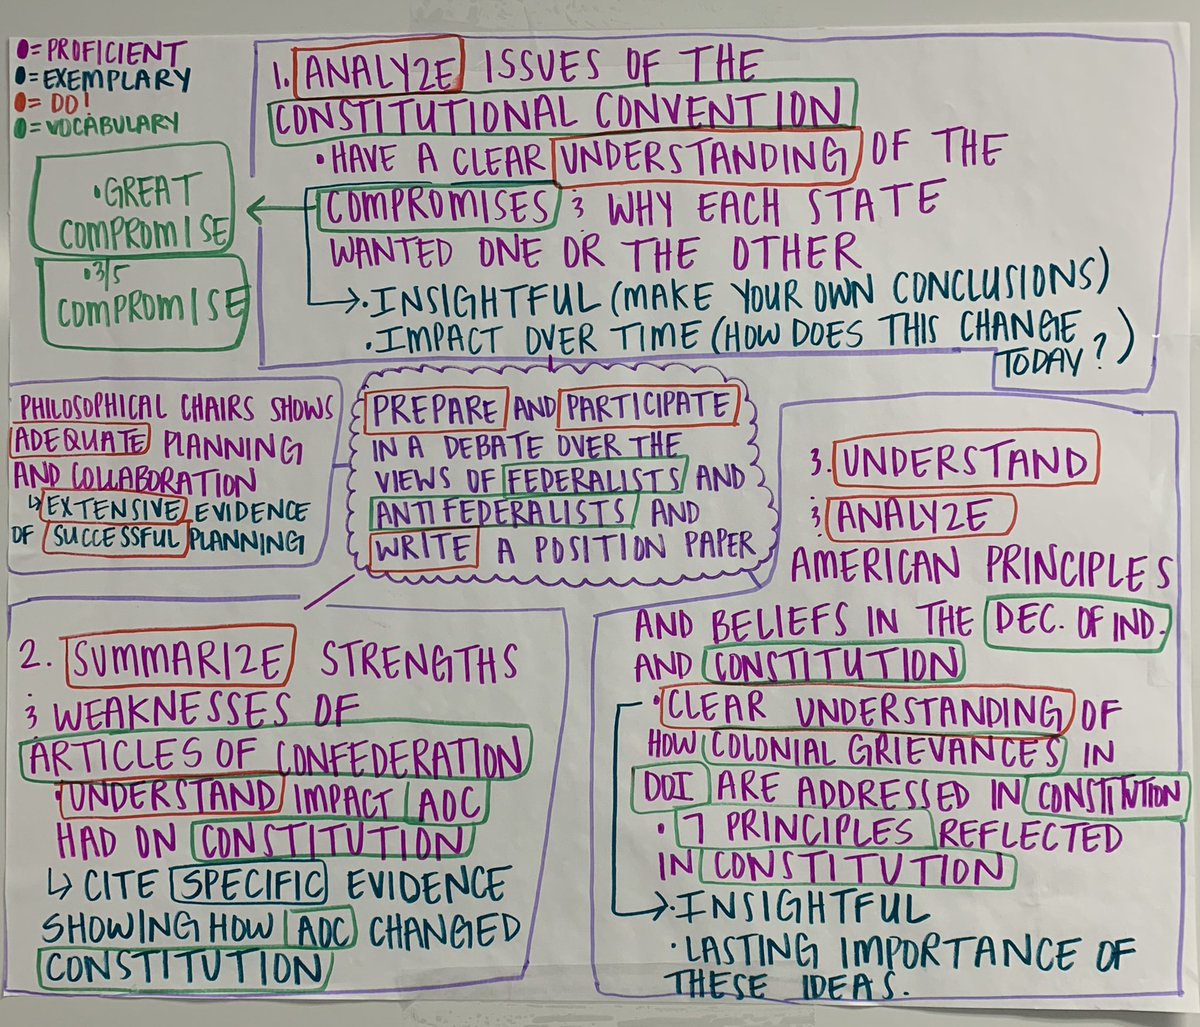 = PROFICIENT
= EXEMPLARY
= DO!
= VOCABULARY
1. ANALYZE ISSUES OF THE
CONSTITUTIONAL CONVENTION
• HAVE A CLEAR UNDERSTANDING OF THE
COMPROMISES & WHY EACH STATE
WANTED ONE OR THE OTHER
• INSIGHTFUL (MAKE YOUR OWN CONCLUSIONS)
• IMPACT OVER TIME (HOW DOES THIS CHANGE
TODAY?)
• GREAT
COMPROMISE
• 3/5
COMPROMISE
PHILOSOPHICAL CHAIRS SHOWS
ADEQUATE PLANNING
AND COLLABORATION
↳ EXTENSIVE EVIDENCE
OF SUCCESSFUL PLANNING
PREPARE AND PARTICIPATE
IN A DEBATE OVER THE
VIEWS OF FEDERALISTS AND
ANTIFEDERALISTS AND
WRITE A POSITION PAPER
2. SUMMARIZE STRENGTHS
& WEAKNESSES OF
ARTICLES OF CONFEDERATION
• UNDERSTAND IMPACT AOC
HAD ON CONSTITUTION
↳ CITE SPECIFIC EVIDENCE
SHOWING HOW AOC CHANGED
CONSTITUTION
3. UNDERSTAND
& ANALYZE
AMERICAN PRINCIPLES
AND BELIEFS IN THE DEC. OF IND.
AND CONSTITUTION
• CLEAR UNDERSTANDING OF
HOW COLONIAL GRIEVANCES IN
DOI ARE ADDRESSED IN CONSTITUTION
• 7 PRINCIPLES REFLECTED
IN CONSTITUTION
• INSIGHTFUL
• LASTING IMPORTANCE OF
THESE IDEAS.